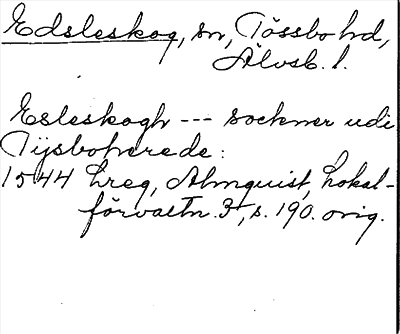 Edsleskog, sn, Tössbo hd,
Älvsb. l.
Esleskogh --- sockner udi
Tijsboherede:
1544 Lreg, Almquist, Lokal-
förvaltn. 3, s. 190. orig.